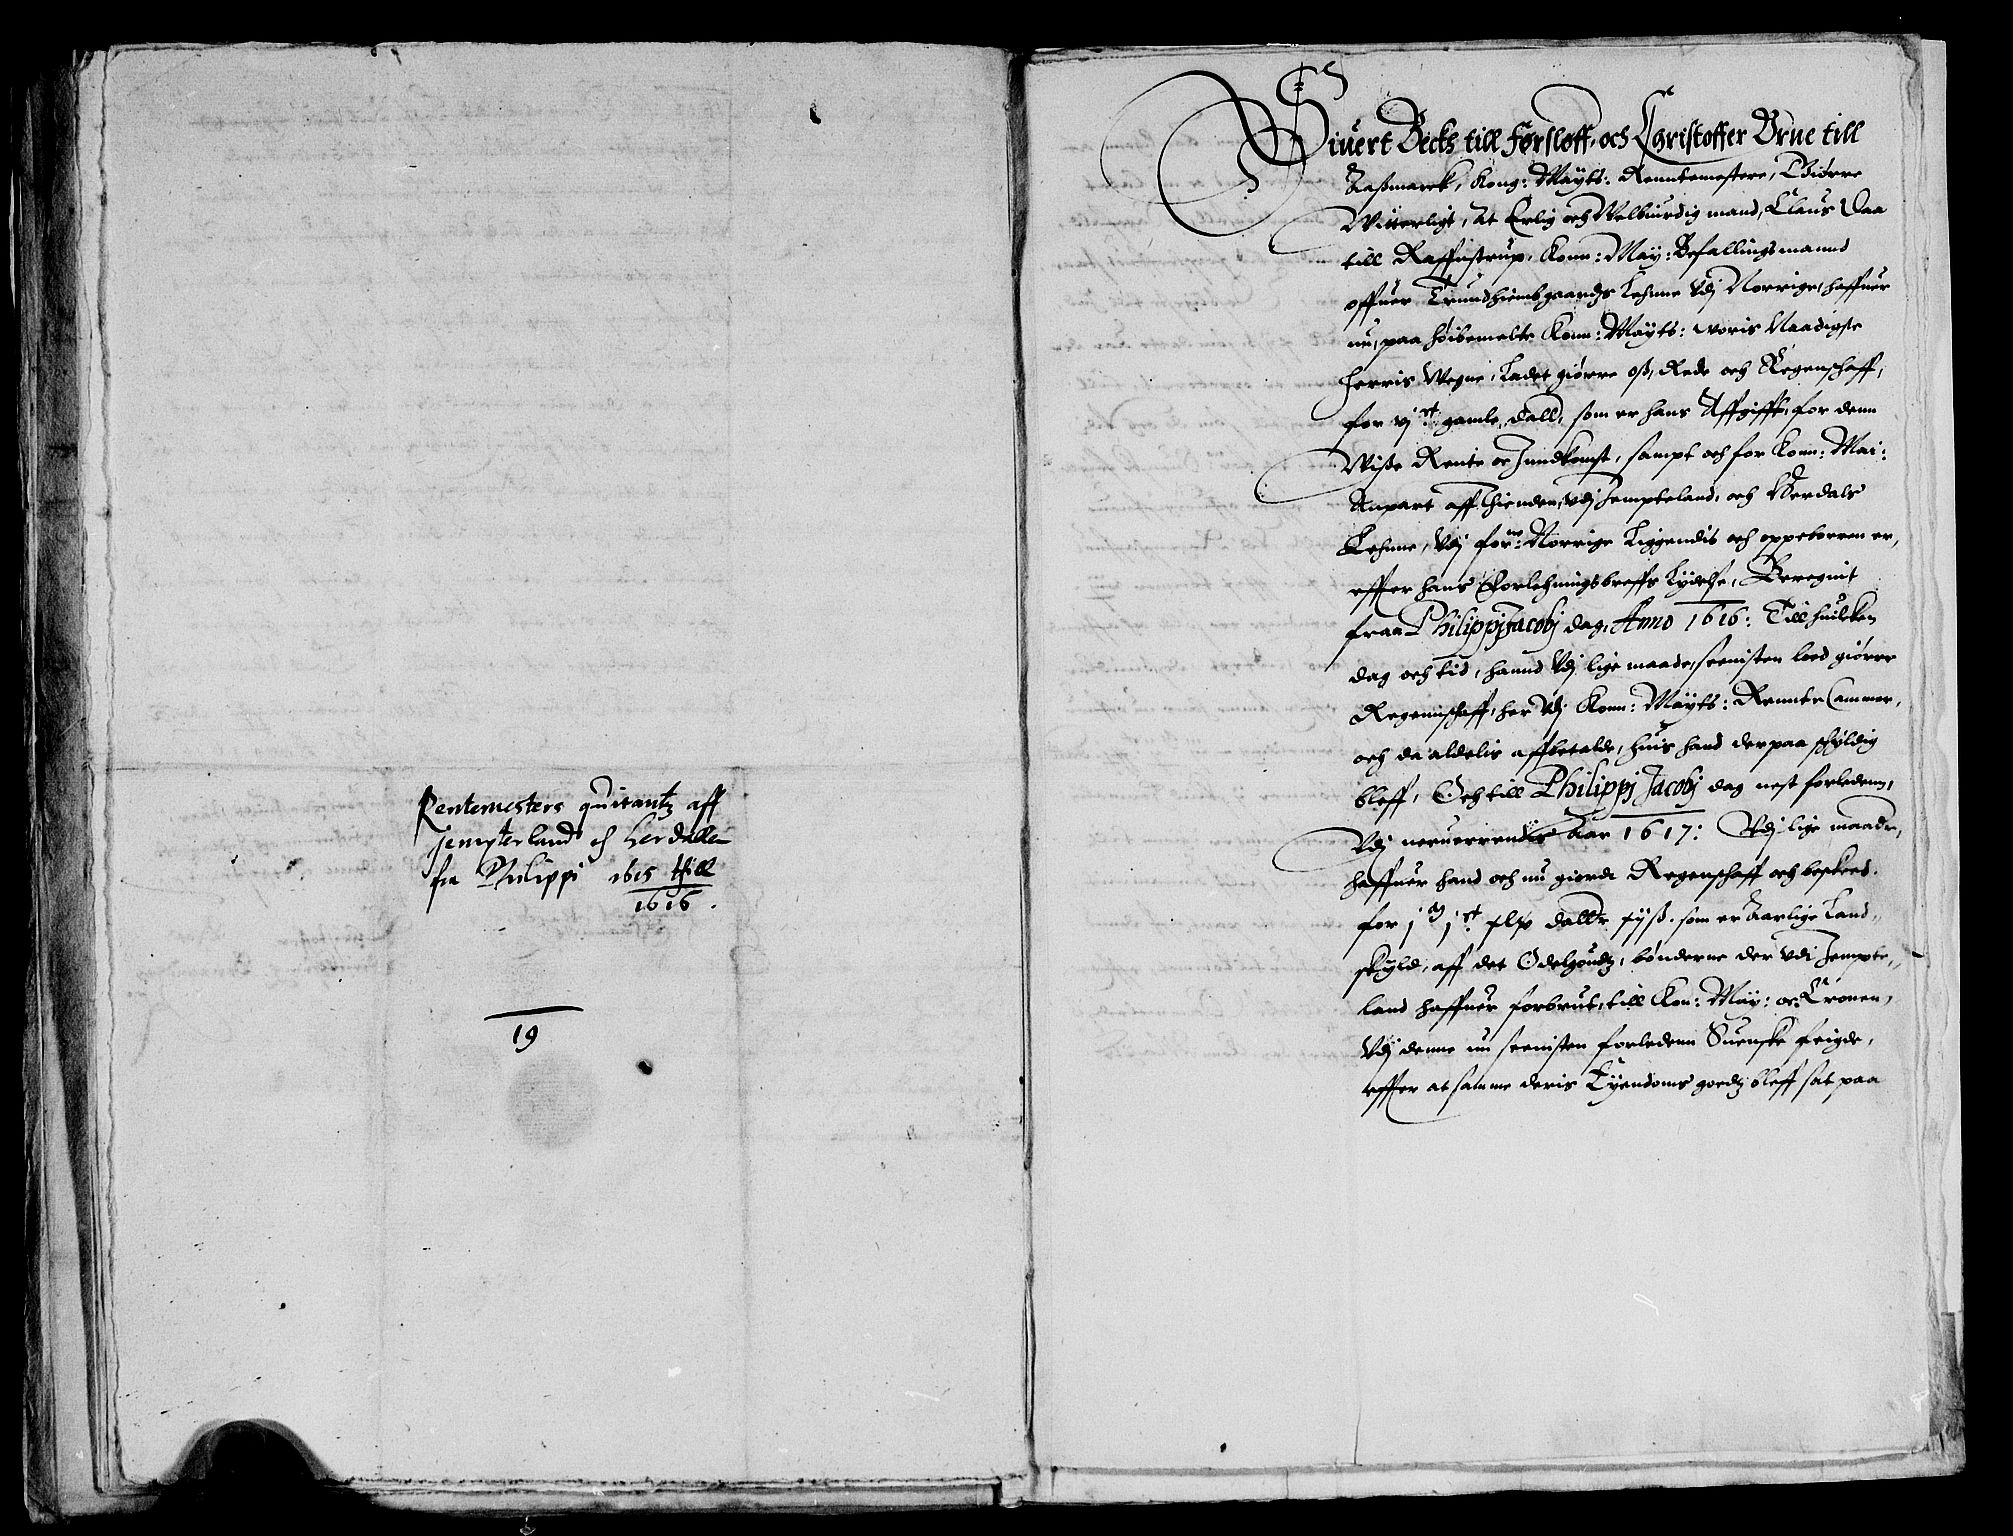 Rentemesters quitantz aff
Jempterland och Herdallen
fra Philippi 1615 thill
1616.
19
Siuert Beck till Førsløff, och Christoffer Vrne till
Aaßmarck, Kong: Maÿts: Renntemestere, Giörre
Witterligt, At Erlig och Welbiurdig mand, Claus Daa
till Raffnstrup, Konn: May: Befallingsmannd
offuer Trundhiembgaardz Lehnne Vdj Norrige, haffuer
nu, paa höibemelte Konn: Maÿts: woris Naadigste
Herris Wegne, Ladet giörre oß, Rede och Regenschaff,
for vj st. gamle Dall, som er hans Affgifft, for denn
Wiße Rente oc Inndkomst, sampt och for Konn: Mai:
Anpart aff Thienden, Vdj Jempteland, och Herdals
Lehnne, Vdj forne: Norrige Liggendis och oppeborren er,
effter hans Forlehningsbreffs Lÿdelse, Beregnit
fraa Philippj Jacobj dag, Anno 1616: Till huilcken
dag och tid, hannd Vdj lige maade, seenisten loed giörre
Regennschaff, her Vdj Konn: Maÿts: Rennte Cammer,
och da aldelis affbetalde, huis hand derpaa schÿldig
bleff, Och till Philippj Jacobj dag nest forledenn,
Vdj neruerrendis Aar 1617: Vdj lige maade,
haffuer hand och nu giordt Regenschaff och beskeed.
for j M j st. slp daller sÿß. som er Aarlige Land-
skÿld, aff det Odelgoudtz, bönderne der vdi Jempte-
land haffuer forbrut, till Kon: Maÿ: oc Cronen,
Vdj denne nu seenisten forledenn Suenske feigde,
effter at samme deris Eÿendoms goedtz bleff sat paa